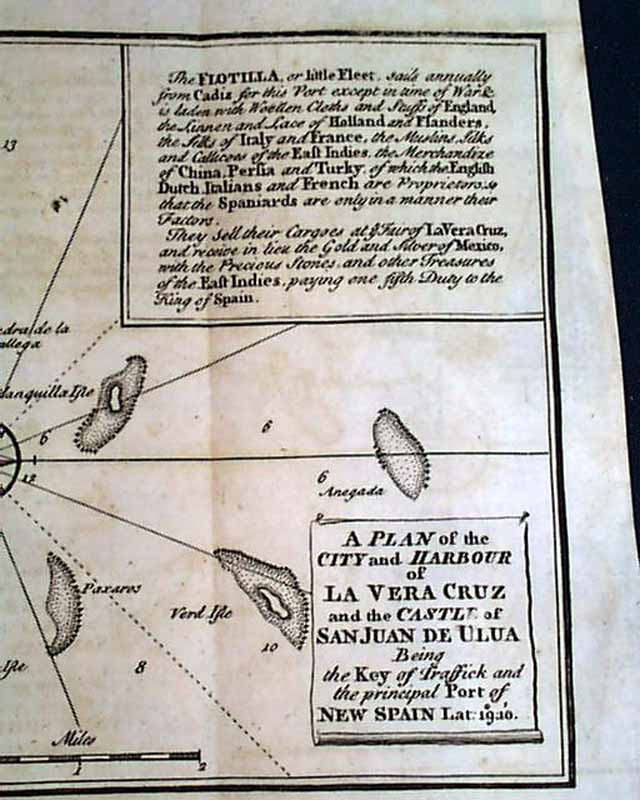 The FLOTILLA, or little Fleet, sails annually
from Cadiz for this Port except in time of War. &
is laden with Woollen Cloths and Stuffs of England,
the Linnen and Lace of Holland and Flanders,
the Silks of Italy and France, the Muslins, Silks
and Callicoes of the East Indies, the Merchandize
of China, Persia and Turky, of which the English
Dutch, Italians and French are Proprietors, so
that the Spaniards are only in a manner their
Factors.
They Sell their Cargoes at ye Fair of La Vera Cruz,
and receive in lieu the Gold and Silver of Mexico,
with the Precious Stones, and other Treasures
of the East Indies, paying one fifth Duty to the
King of Spain.
13
edra de la
allega
lanquilla Isle
6
6
12
6
Anegada
A PLAN of the
CITY and HARBOUR
of
LA VERA CRUZ
and the CASTLE of
SAN JUAN DE ULUA
Being
the Key of Traffick and
the principal Port of
NEW SPAIN Lat. 19.10.
Paxaros
Verd Isle
10
Isle
8
Miles
1
2